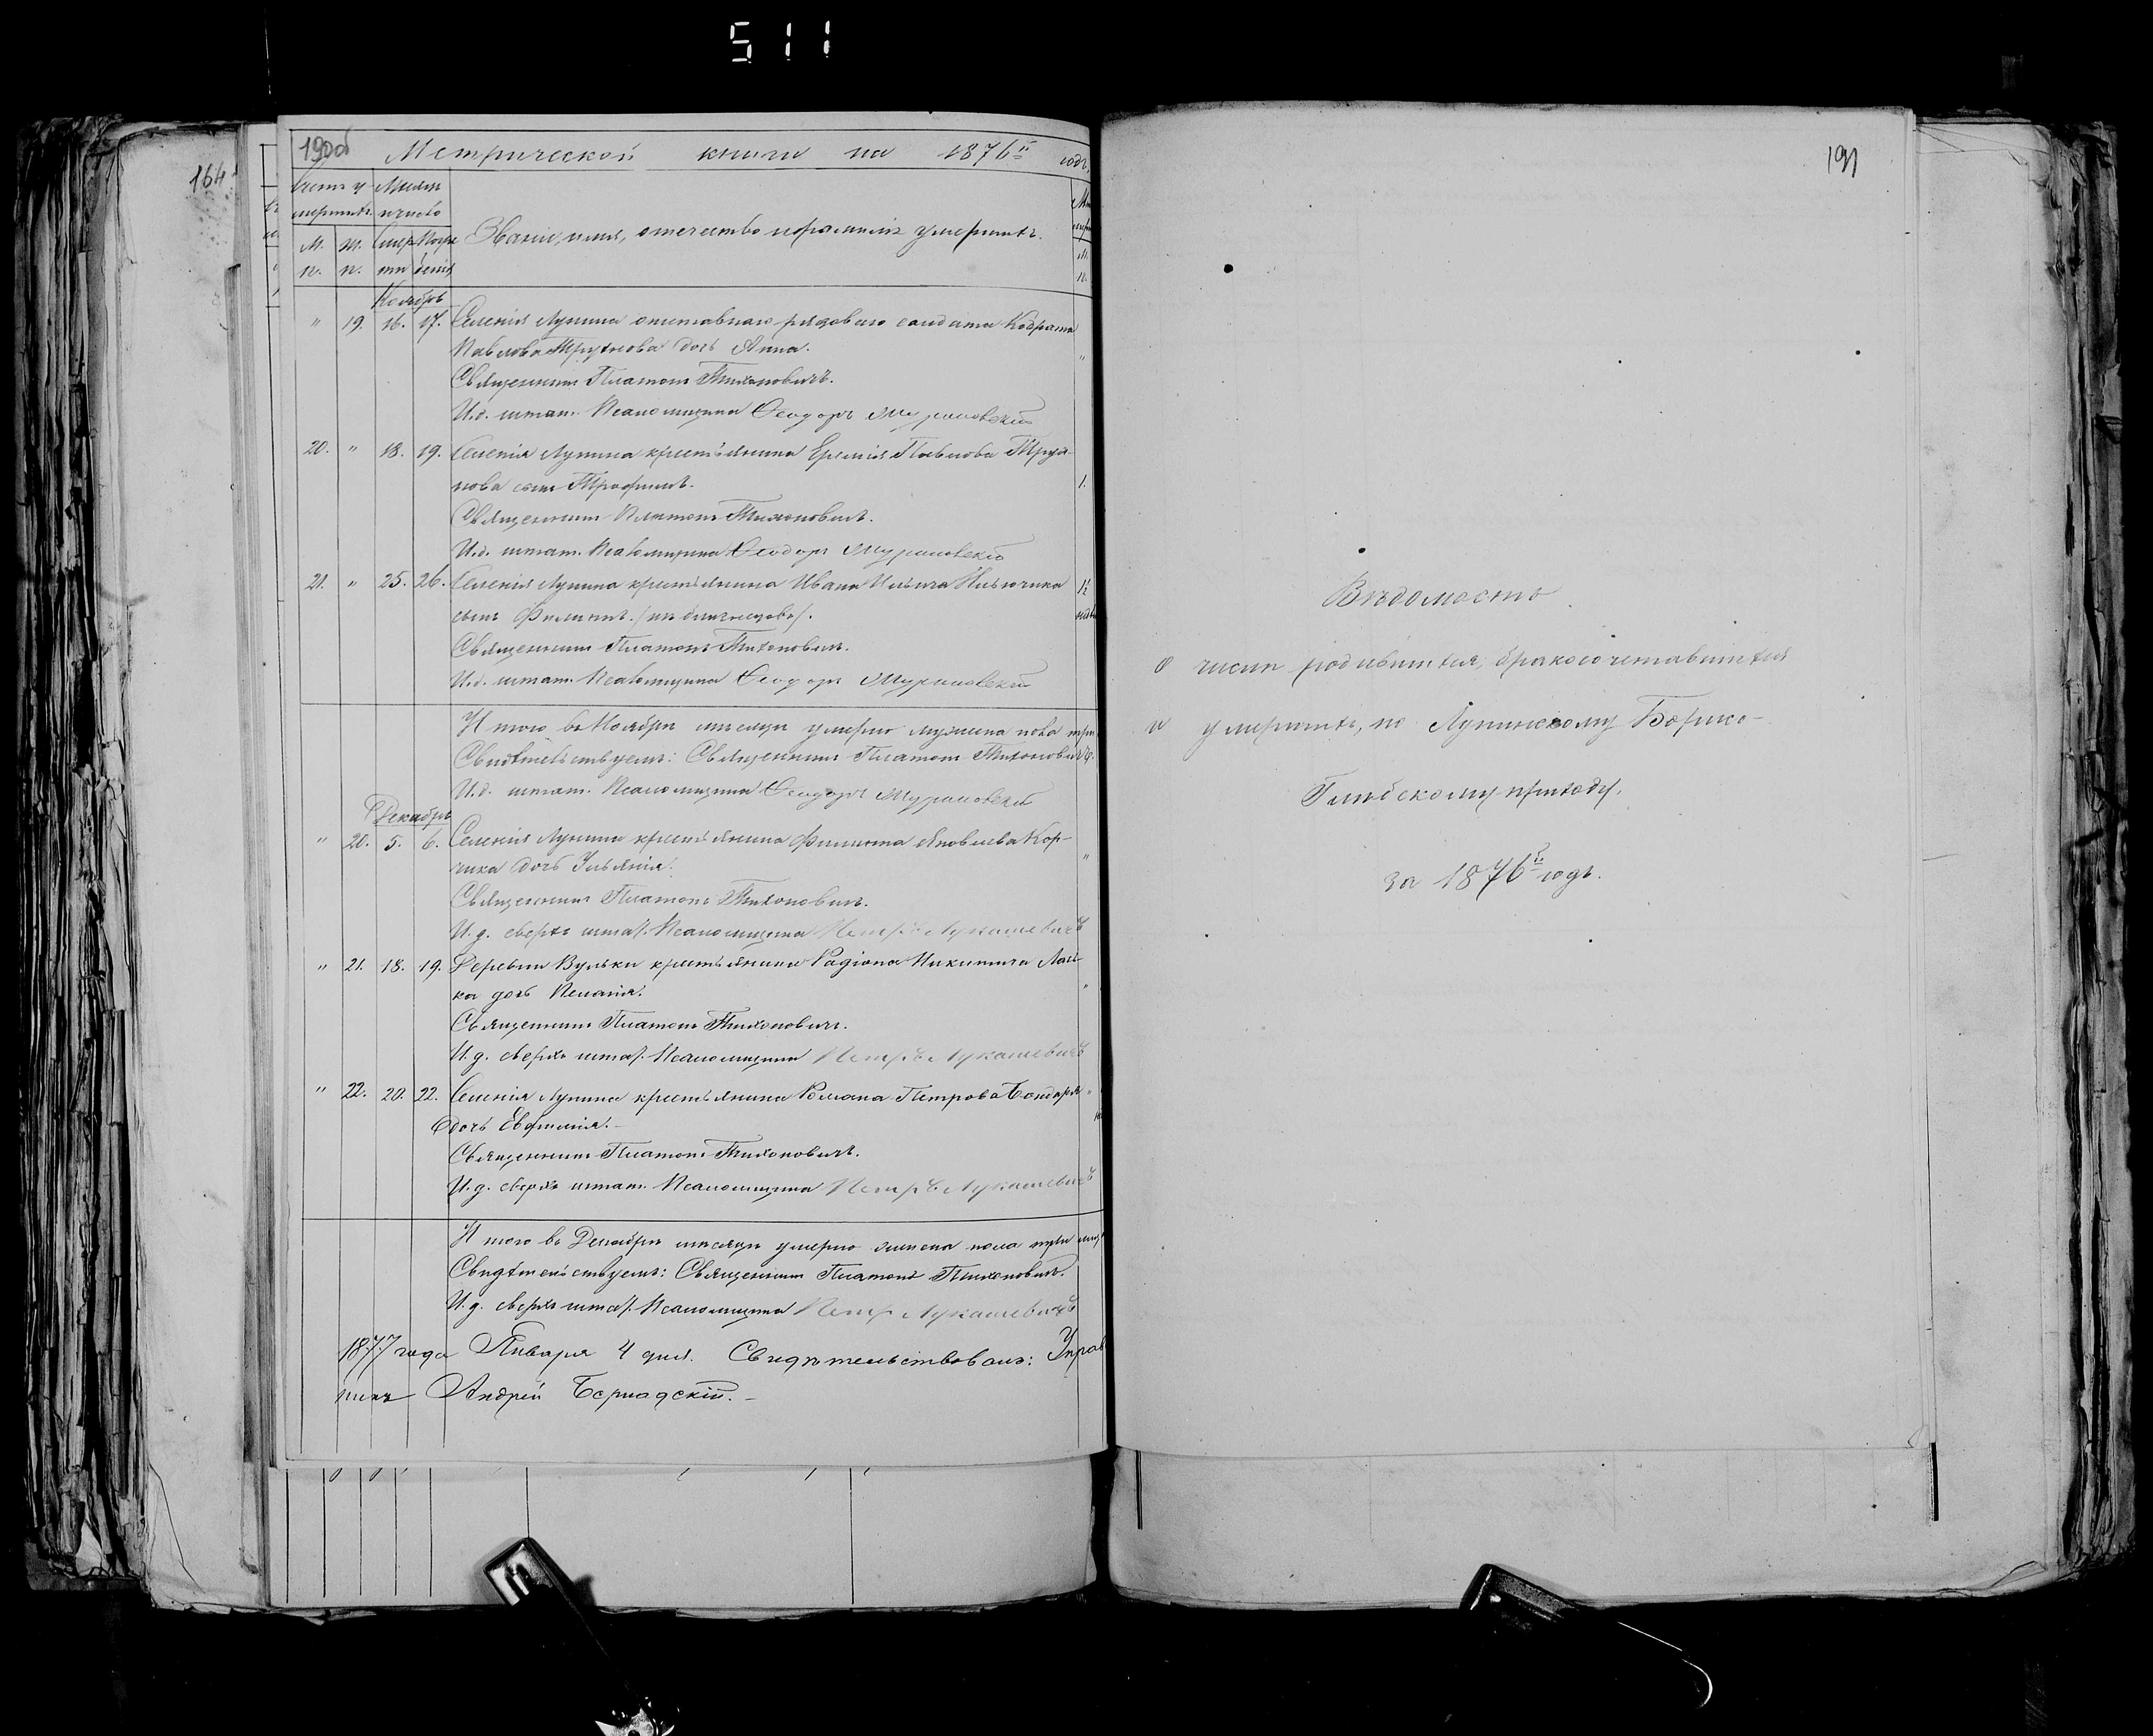 511
164
190об
Метрической книги на 1876й годъ.
Счетъ у- Месяцъ
мершихъ. и число
М. Ж. Смер Погре
п. п. ти бенія
Званіе, имя, отчество и фамилія умершихъ.
Ноябрь
" 19. 16. 17. Селенія Лунина отставнаго рядоваго солдата Кодрата
Павлова дочь Анна.
Священникъ Платонъ Тихоновичъ.
И.д. штат. Псаломщика Ѳеодоръ
20. " 18. 19. Селенія Лунина крестьянина Еремія Павлова
нова сынъ Трофимъ. 1.
Священникъ Платонъ Тихоновичъ.
И.д. штат. Псаломщика Ѳеодоръ
21. " 25. 26. Селенія Лунина крестьянина Ивана Ильича
сынъ Филиппъ. (изъ близнецовъ).
Священникъ Платонъ Тихоновичъ.
И.д. штат. Псаломщика Ѳеодоръ
Итого въ Ноябрѣ месяцѣ умерло мужеска пола
Свидѣтельствуемъ: Священникъ Платонъ Тихоновичъ.
И.д. штат. Псаломщика Ѳеодоръ
Декабрь
" 20. 5. 6. Селенія Лунина крестьянина Филиппа Яковлева Кор-
чика дочь Ульянія.
Священникъ Платонъ Тихоновичъ.
И.д. сверхъ штат. Псаломщика Петръ Лукашевичъ
" 21. 18. 19. Деревни Вульки крестьянина Радіона Никитича
ка дочь Пелагія.
Священникъ Платонъ Тихоновичъ.
И.д. сверхъ штат. Псаломщика Петръ Лукашевичъ
" 22. 20. 22. Селенія Лунина крестьянина Романа Петрова Бондаря
дочь Евфимія. -
Священникъ Платонъ Тихоновичъ.
И.д. сверхъ штат. Псаломщика Петръ Лукашевичъ
Итого въ Декабрѣ месяцѣ умерло женска пола три
Свидѣтельствуемъ: Священникъ Платонъ Тихоновичъ.
И.д. сверхъ штат. Псаломщика Петръ Лукашевичъ
1877 года Января 4 дня. Свидѣтельствовалъ:
Андрей -
191
Вѣдомость
о числѣ родившихся, бракосочетавшихся
и умершихъ, по Лунинскому Борисо-
Глѣбскому приходу,
за 1876й годъ.